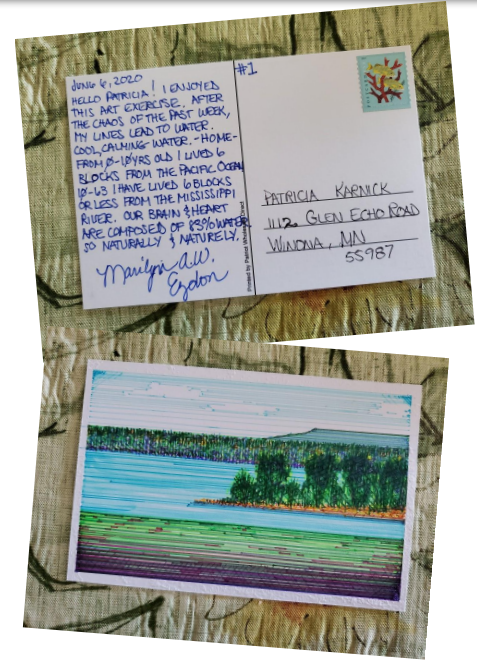 JUNE 6, 2020
HELLO PATRICIA! I ENJOYED
THIS ART EXERCISE. AFTER
THE CHAOS OF THE PAST WEEK,
MY LINES LEAD TO WATER.
COOL, CALMING-WATER.-HOME-
FROM 0-10YRS OLD I LIVED 6
BLOCKS FROM THE PACIFIC OCEAN
10-63 I HAVE LIVED 6 BLOCKS
OR LESS FROM THE MISSISSIPPI
RIVER. OUR BRAIN & HEART
ARE COMPOSED OF 83% WATER
SO NATURALLY & NATURELY,
Marilyn A.W.
#1
PATRICIA KARNICK
1112 GLEN ECHO ROAD
WINONA, MN
55987
Printed by Patriot